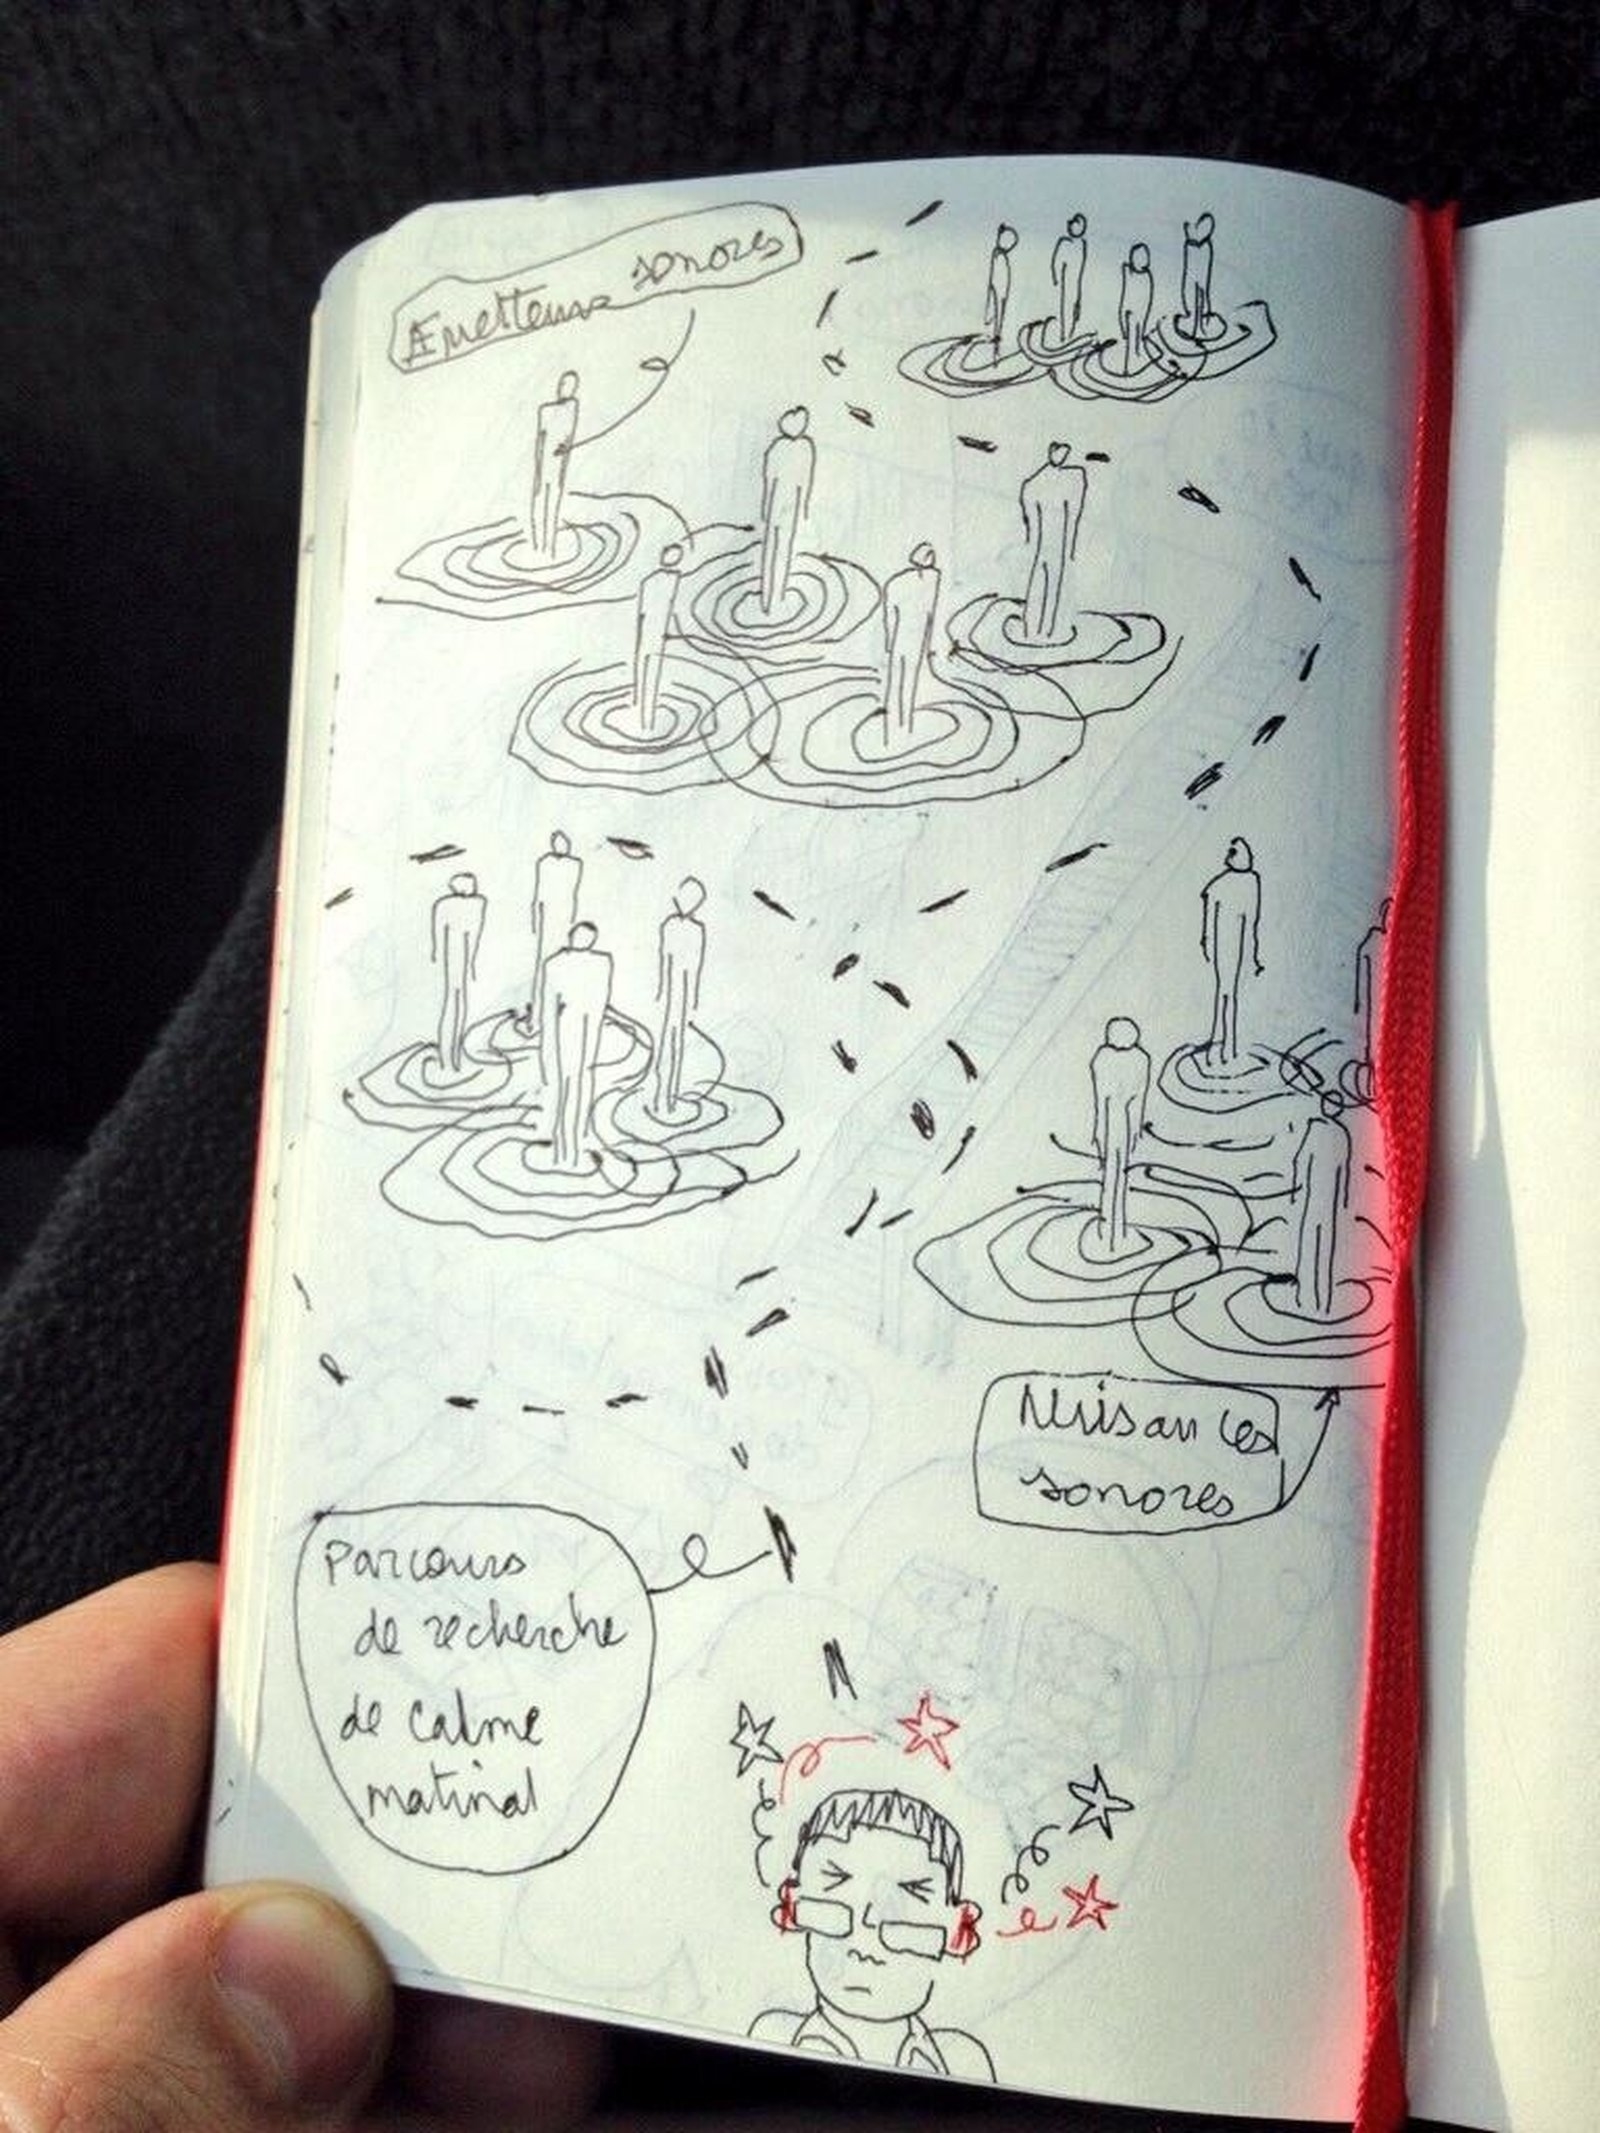 Emetteurs sonores
Nuisances
sonores
Parcours
de recherche
de calme
matinal